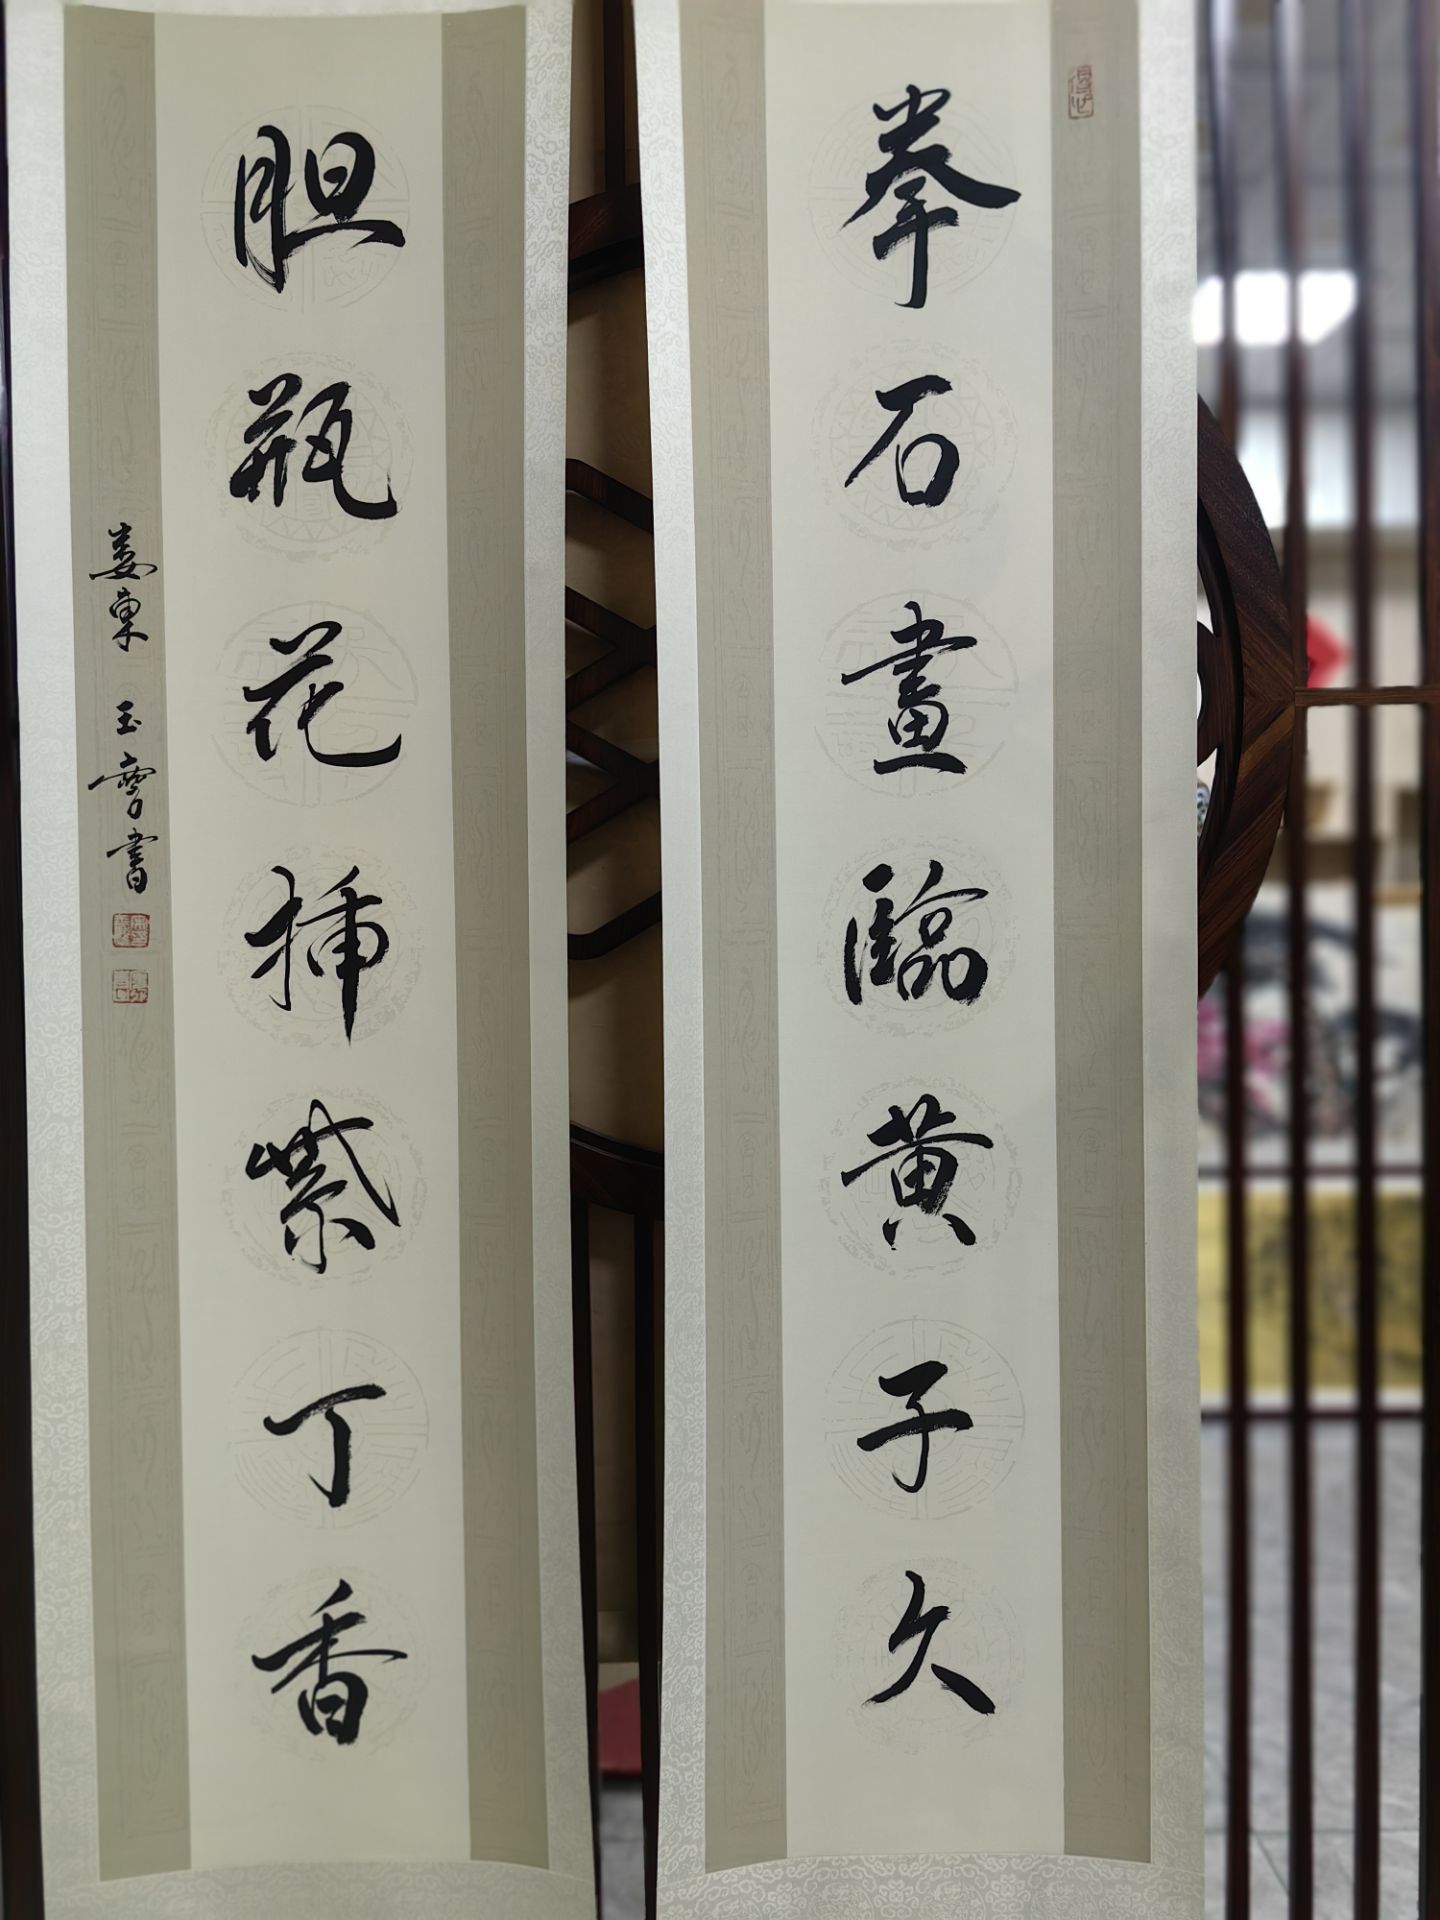 拳石畫臨黄子久
胆瓶花插紫丁香
娄東 玉
書